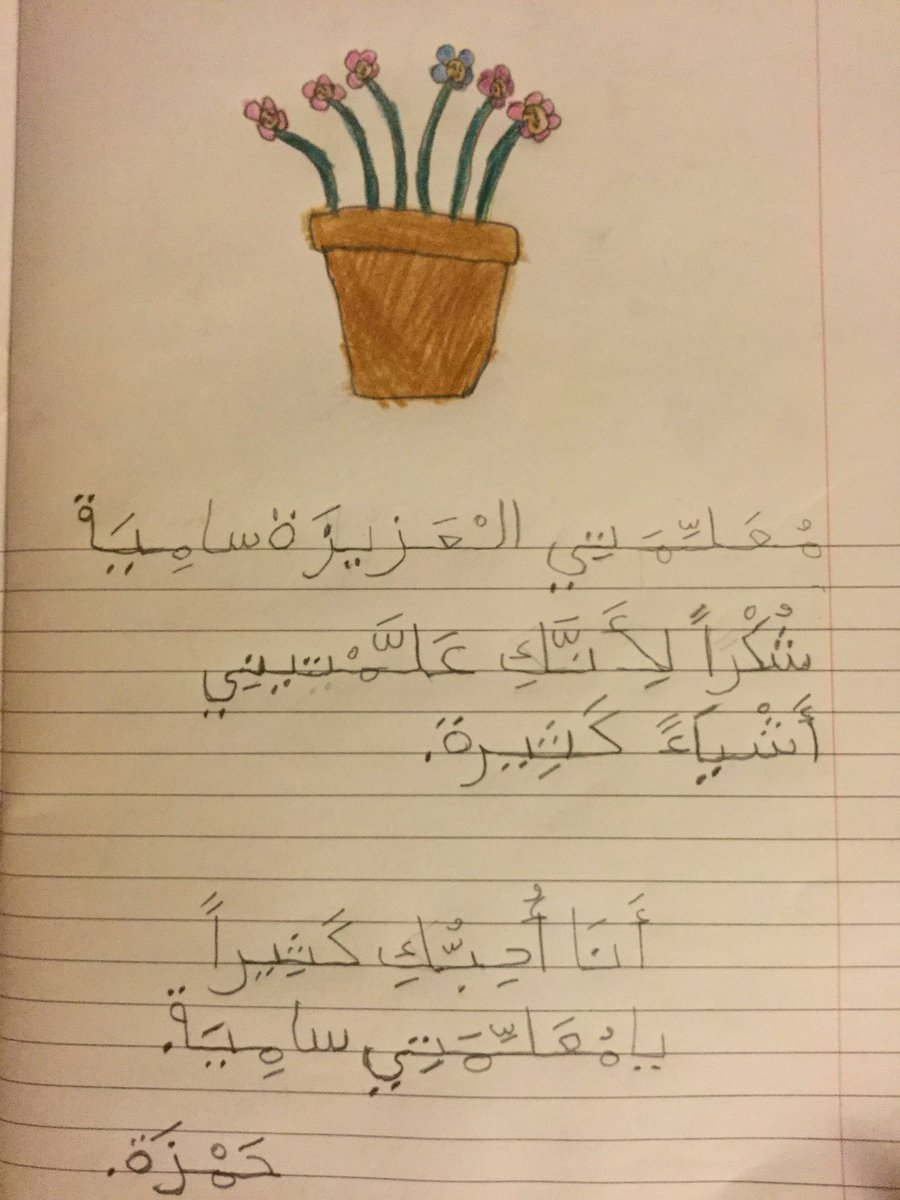 مُعَلِّمَتِي الْعَزِيزَة سامِيَة
شُكْراً لِأَنَّكِ عَلَّمْتِينِي
أَشْيَاءً كَثِيرة.
أَنَا أُحِبُّكِ كَثِيراً
يا مُعَلِّمَتِي سامِيَة.
حَمْزَة.